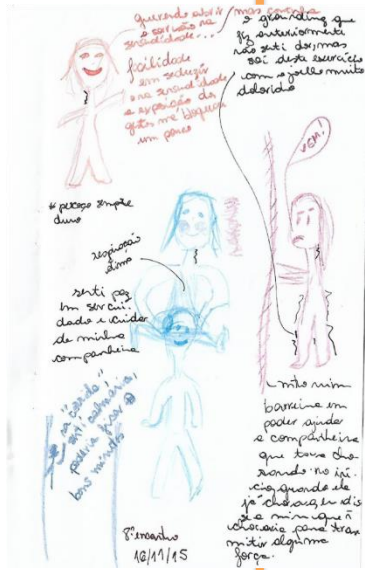 querendo abrir
o coração na
sexualidade...
mas
facilidade
em seduzir
e na sexualidade
a expressão dos
gestos me bloqueia
um pouco
o grounding que
fiz anteriormente
não senti dor, mas
saí deste exercício
com o joelho muito
dolorido
VEM!
* pescoço sempre
duro
respiração
ótima
senti paz
em ser cui-
dada e cuidar
de minha
companheira
na "corda"
senti
poderia ficar
bons minutos
barreira em
poder ajudar
a companheira
que tava cho-
rando no iní-
cio, quando ela
já chorava, eu dis-
se a mim que ñ
choraria para trans-
mitir alguma
força.
8º encontro
16/11/15